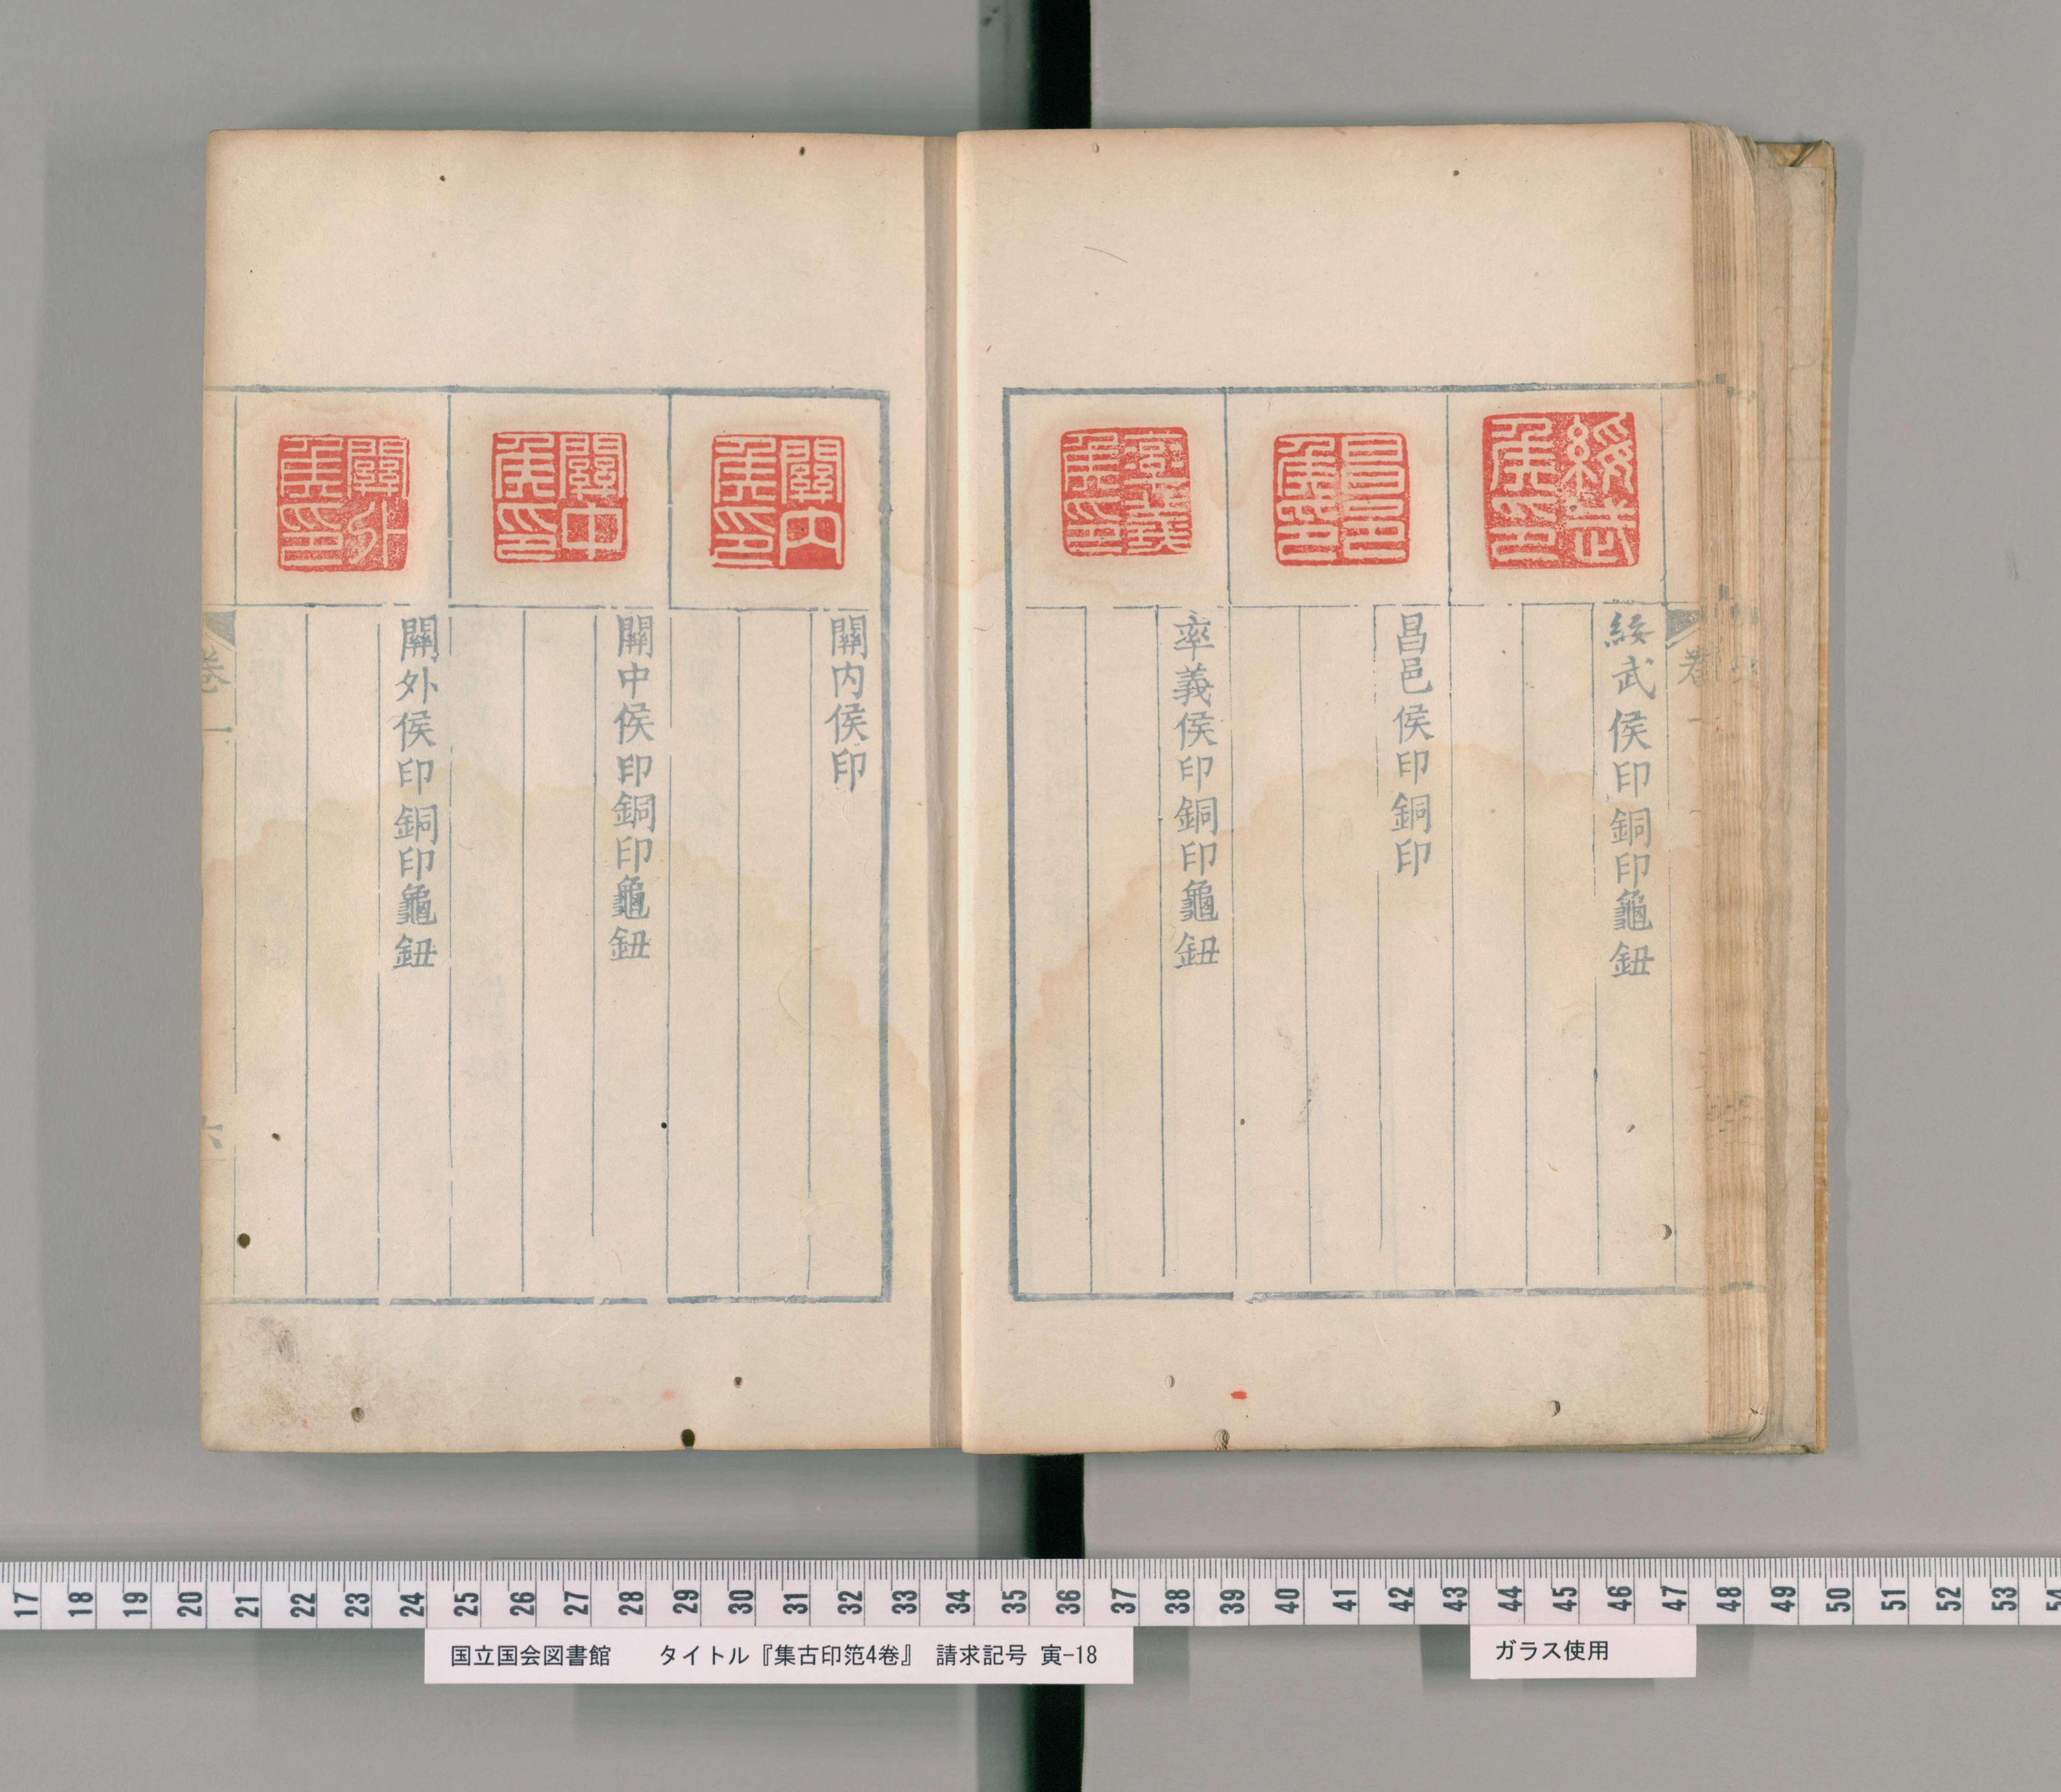 綏武侯印
綏武侯印銅印龜鈕
昌邑侯印
昌邑侯印銅印
率義侯印
率義侯印銅印龜鈕
卷一
關內侯印
關内侯印
關中侯印
關中侯印銅印龜鈕
關外侯印
關外侯印銅印龜鈕
卷一
六
17 18 19 20 21 22 23 24 25 26 27 28 29 30 31 32 33 34 35 36 37 38 39 40 41 42 43 44 45 46 47 48 49 50 51 52 53 54
国立国会図書館 タイトル『集古印笵4巻』 請求記号 寅-18
ガラス使用